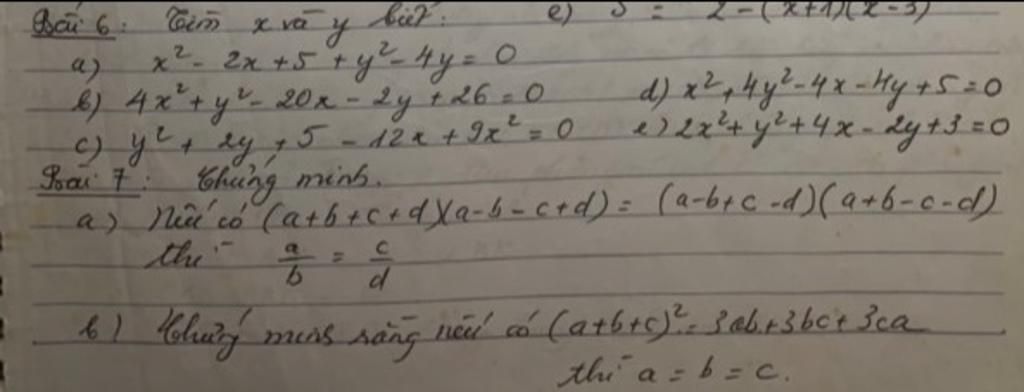 Bài 6: Tìm x và y biết: e) 5 = 2-(x+1)(x-3)
a) x² - 2x + 5 + y² - 4y = 0
b) 4x² + y² - 20x - 2y + 26 = 0 d) x² + 4y² - 4x - 4y + 5 = 0
c) y² + 2y + 5 - 12x + 9x² = 0 e) 2x² + y² + 4x - 2y + 3 = 0
Bài 7: Chứng minh.
a) Nếu có (a+b+c+d)(a-b-c+d) = (a-b+c-d)(a+b-c-d)
thì a/b = c/d
b) Chứng minh rằng nếu có (a+b+c)² = 3ab+3bc+3ca
thì a = b = c.